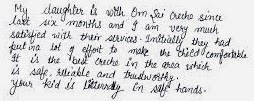 My daughter is with Om Sai creche since
last six months and I am very much
satisfied with their services. Initially they had
put in a lot of effort to make the child comfortable
It is the best creche in the area which
is safe, reliable and trustworthy.
Your kid is litterally in safe hands.